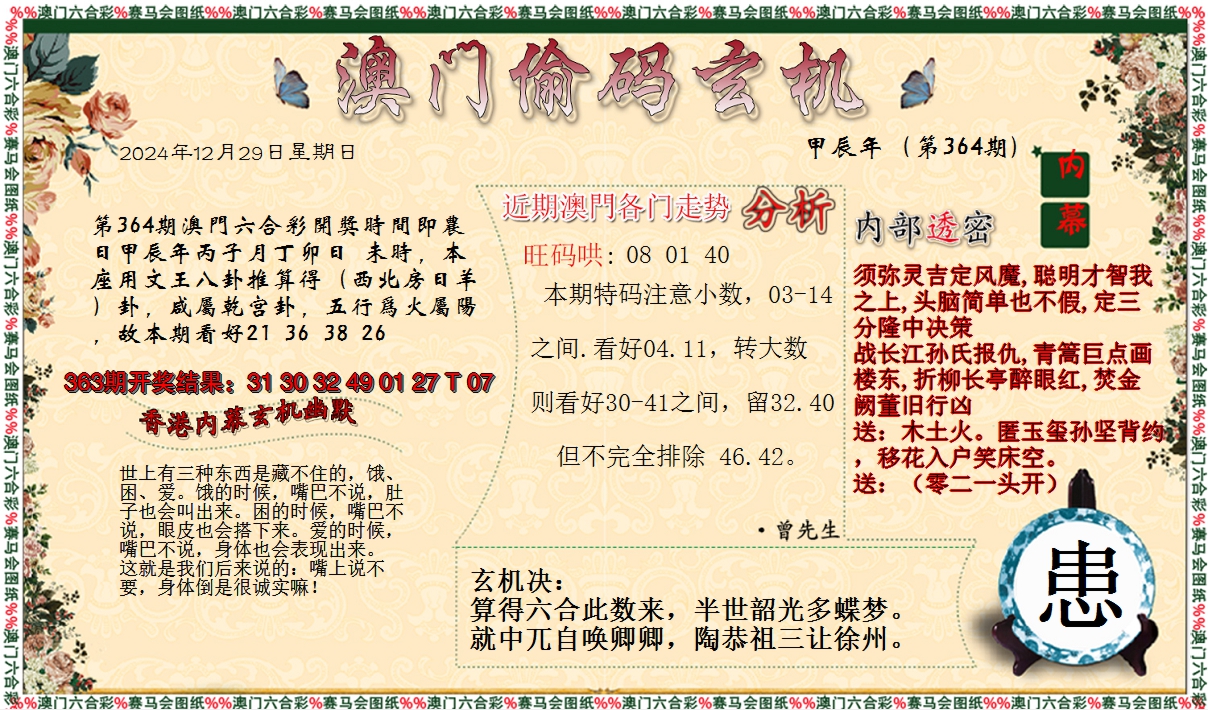 %%澳门六合彩%赛马会图纸%%澳门六合彩%赛马会图纸%%澳门六合彩%赛马会图纸%%澳门六合彩%赛马会图纸%%澳门六合彩%赛马会图纸%%澳门六合彩%赛马会图纸%%
澳门偷码玄机
2024年12月29日星期日
甲辰年（第364期）
内
幕
第364期澳門六合彩開獎時間即農
日甲辰年丙子月丁卯日 未時，本
座用文王八卦推算得（西北房日羊
）卦，咸屬乾宫卦，五行爲火屬陽
，故本期看好21 36 38 26
363期开奖结果：31 30 32 49 01 27 T 07
香港内幕玄机幽默
世上有三种东西是藏不住的，饿、
困、爱。饿的时候，嘴巴不说，肚
子也会叫出来。困的时候，嘴巴不
说，眼皮也会搭下来。爱的时候，
嘴巴不说，身体也会表现出来。
这就是我们后来说的：嘴上说不
要，身体倒是很诚实嘛！
近期澳門各门走势 分析
旺码哄: 08 01 40
本期特码注意小数，03-14
之间.看好04.11，转大数
则看好30-41之间，留32.40
但不完全排除 46.42。
·曾先生
内部透密
须弥灵吉定风魔,聪明才智我
之上,头脑简单也不假,定三
分隆中决策
战长江孙氏报仇,青篙巨点画
楼东,折柳长亭醉眼红,焚金
阙董旧行凶
送：木土火。匿玉玺孙坚背约
，移花入户笑床空。
送：（零二一头开）
玄机决：
算得六合此数来，半世韶光多蝶梦。
就中兀自唤卿卿，陶恭祖三让徐州。
患
%%澳门六合彩%赛马会图纸%%澳门六合彩%赛马会图纸%%澳门六合彩%赛马会图纸%%澳门六合彩%赛马会图纸%%澳门六合彩%赛马会图纸%%澳门六合彩%赛马会图纸%%